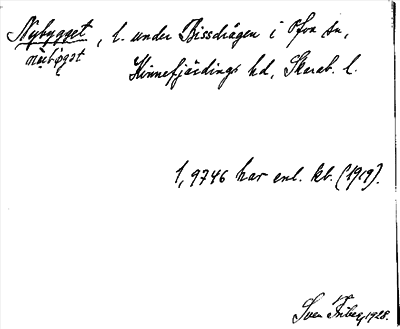 Nybygget, l. under Bissdrågen i Ofou sn,
nybøgət Kinnefjärdings hd, Skarab. l.
1,9746 har enl. kb. (1919).
Sven Friberg, 1928.